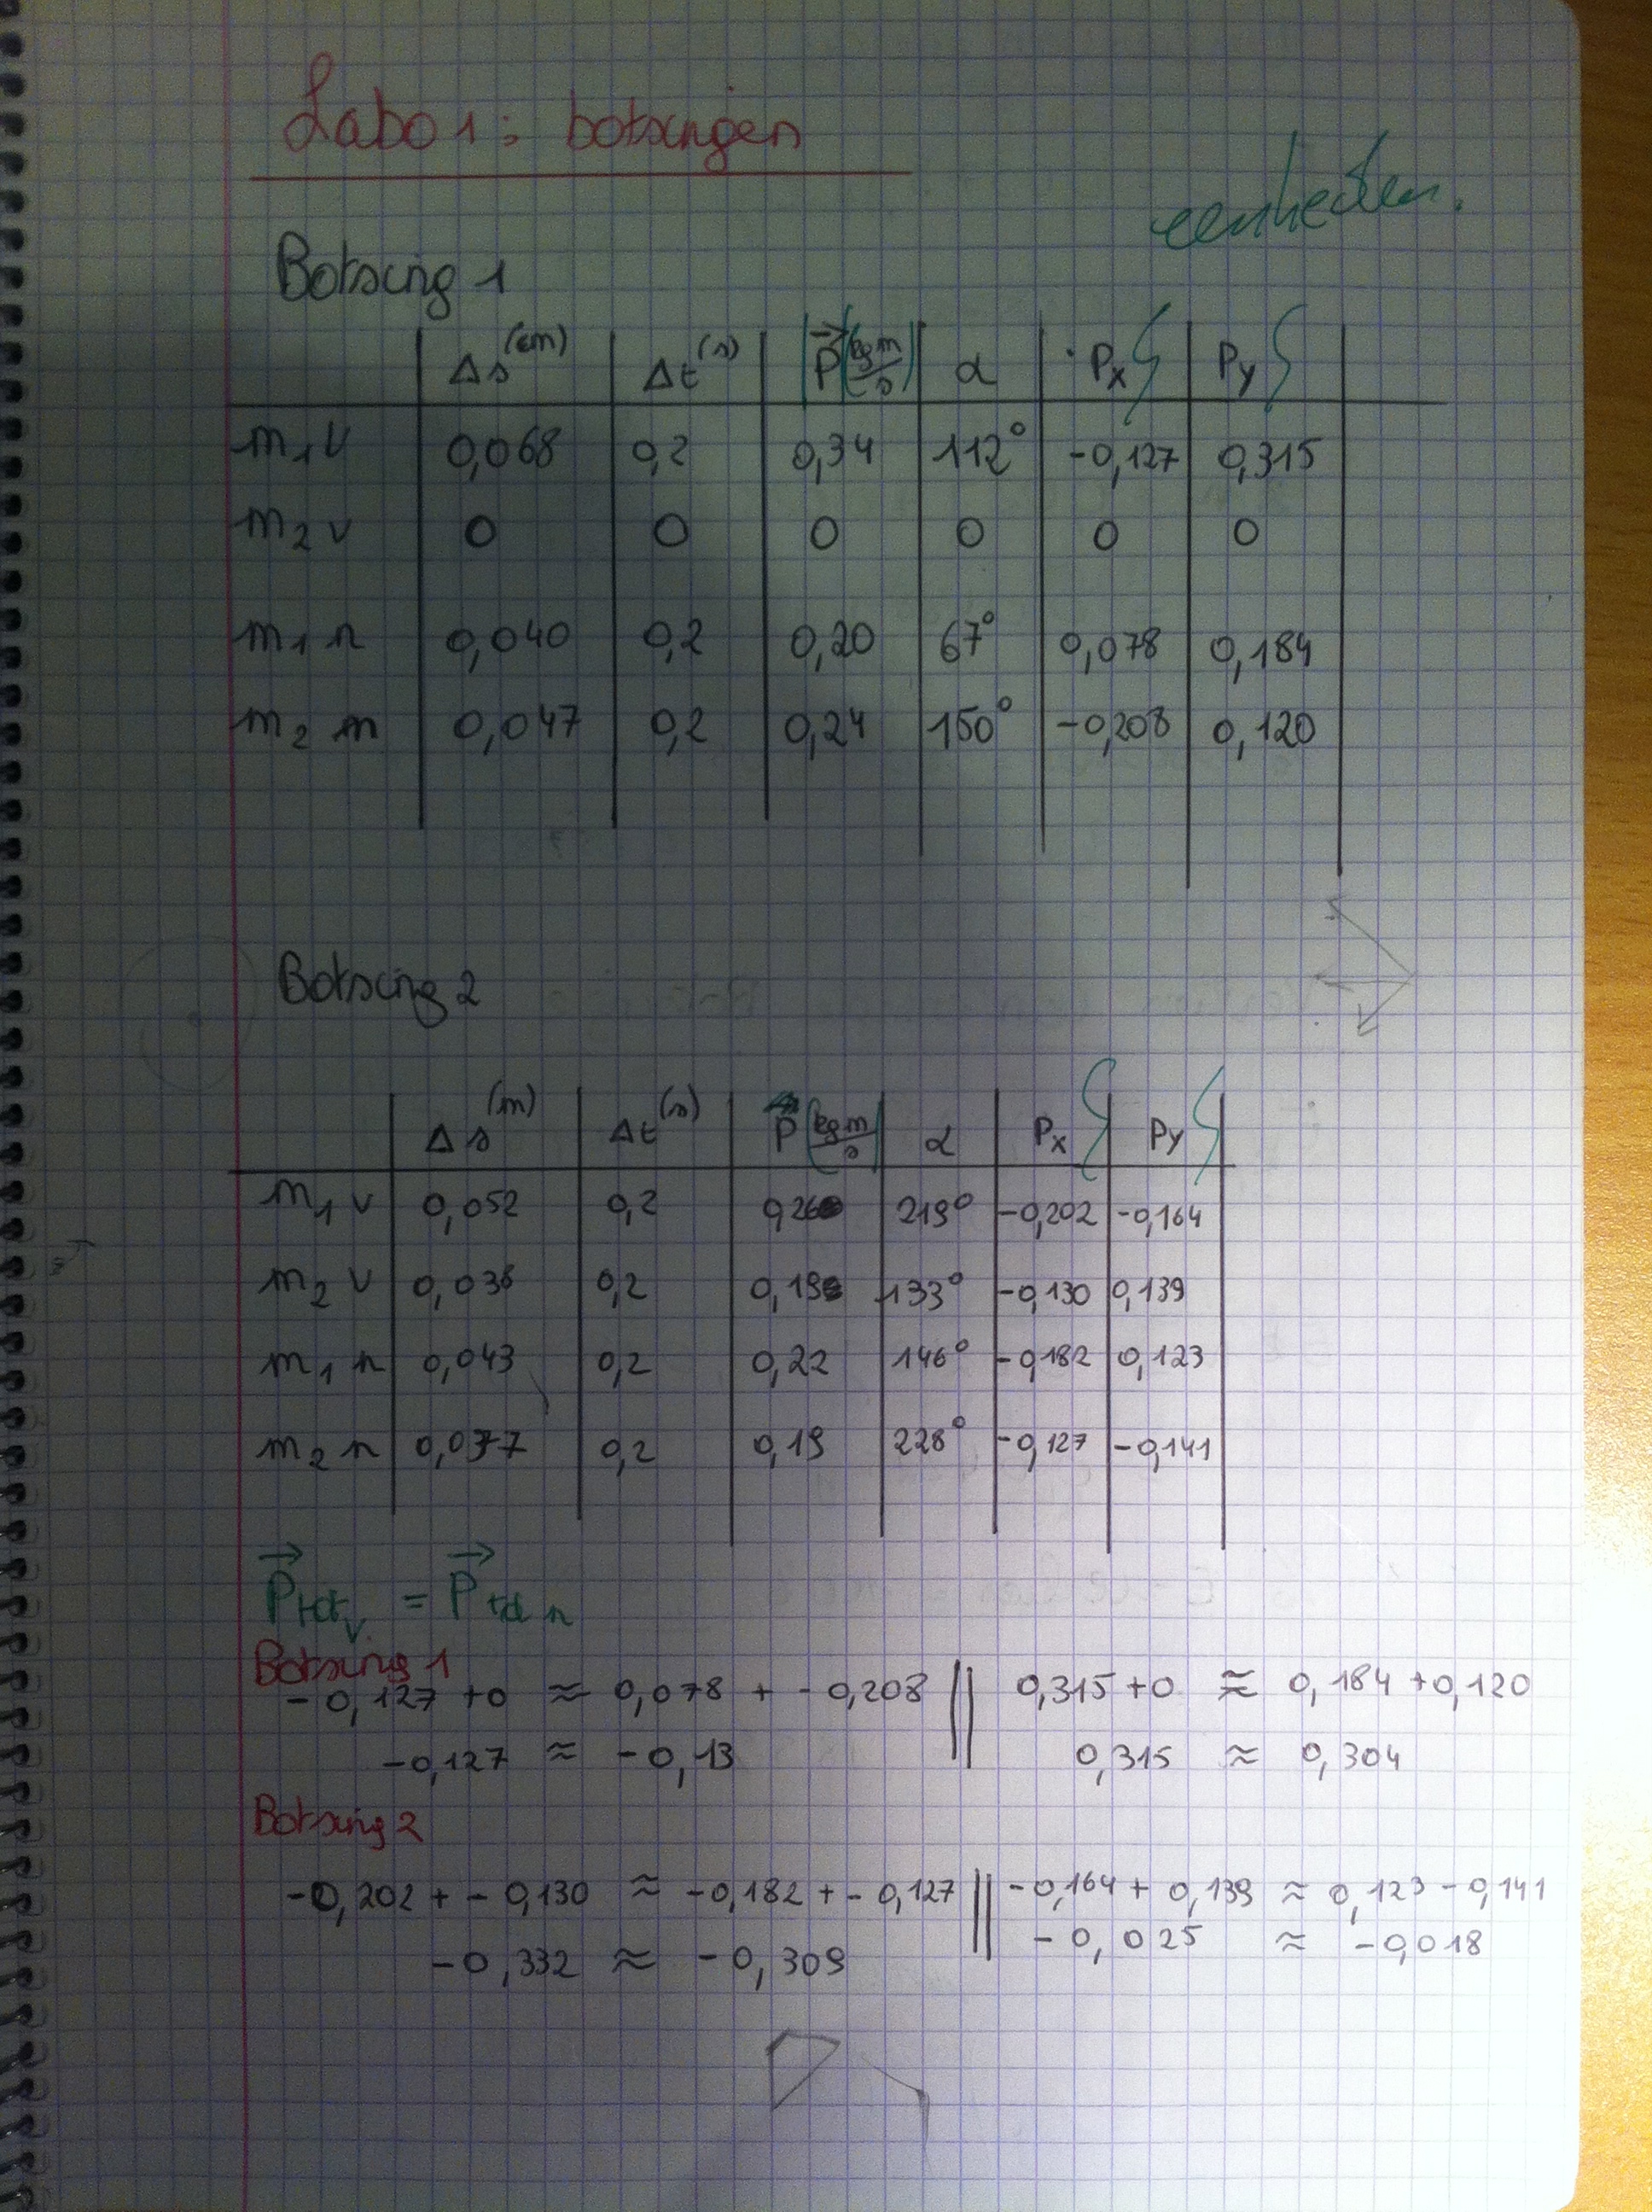 Labo 1: botsingen
eenheden.
Botsing 1
Δs (cm) Δt (s) |P⃗| (kgm/s) α Px Py
m1 v 0,068 0,2 0,34 112° -0,127 0,315
m2 v 0 0 0 0 0 0
m1 n 0,040 0,2 0,20 67° 0,078 0,184
m2 n 0,047 0,2 0,24 150° -0,208 0,120
Botsing 2
Δs (m) Δt (s) P⃗ (kgm/s) α Px Py
m1 v 0,052 0,2 0,26 219° -0,202 -0,164
m2 v 0,038 0,2 0,19 133° -0,130 0,139
m1 n 0,043 0,2 0,22 146° -0,182 0,123
m2 n 0,037 0,2 0,19 228° -0,127 -0,141
P⃗tot v = P⃗tot n
Botsing 1
-0,127 + 0 ≈ 0,078 + -0,208 || 0,315 + 0 ≈ 0,184 + 0,120
-0,127 ≈ -0,13 0,315 ≈ 0,304
Botsing 2
-0,202 + -0,130 ≈ -0,182 + -0,127 || -0,164 + 0,139 ≈ 0,123 - 0,141
-0,332 ≈ -0,309 -0,025 ≈ -0,018